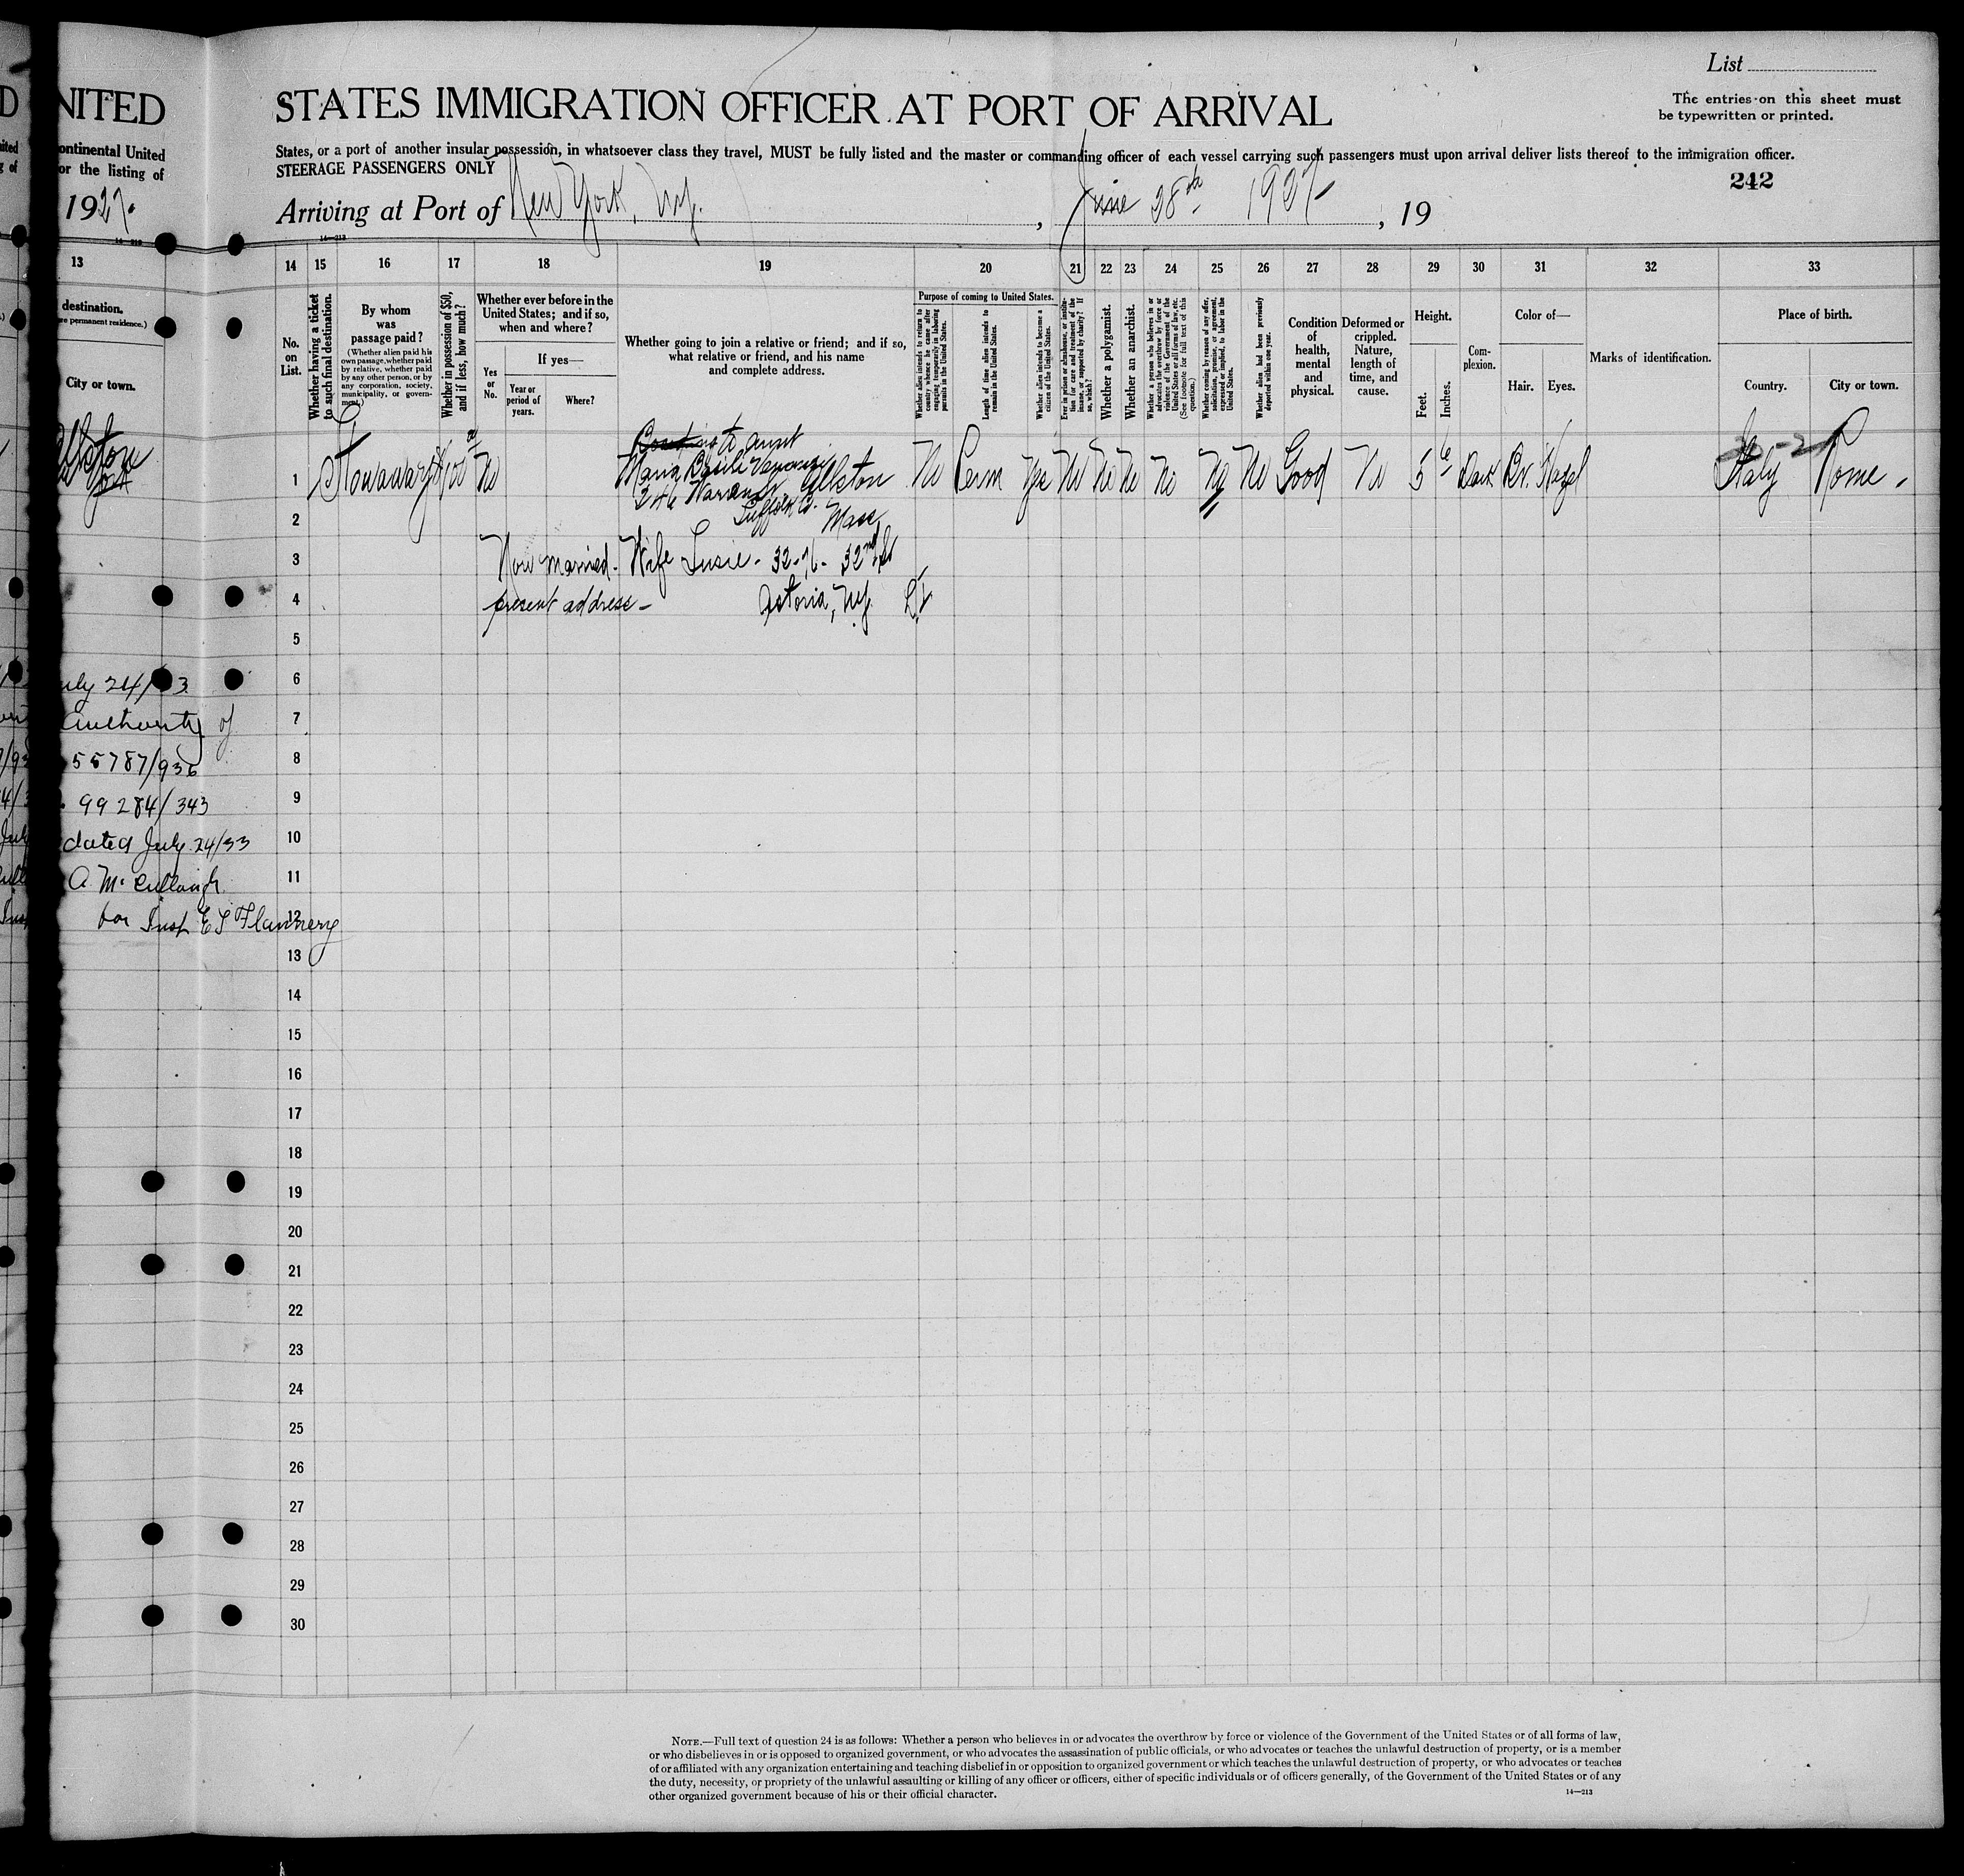 List
The entries on this sheet must
be typewritten or printed.
D NITED STATES IMMIGRATION OFFICER AT PORT OF ARRIVAL
ontinental United States, or a port of another insular possession, in whatsoever class they travel, MUST be fully listed and the master or commanding officer of each vessel carrying such passengers must upon arrival deliver lists thereof to the immigration officer.
or the listing of STEERAGE PASSENGERS ONLY
242
1927. Arriving at Port of New York, N.Y. , June 28th 1927 , 19
14—213
13 14 15 16 17 18 19 20 21 22 23 24 25 26 27 28 29 30 31 32 33
destination.
re permanent residence.)
City or town.
No. on List.
Whether having a ticket to such final destination.
By whom was passage paid?
(Whether alien paid his own passage, whether paid by relative, whether paid by any other person, or by any corporation, society, municipality, or government.)
Whether in possession of $50, and if less, how much?
Whether ever before in the United States; and if so, when and where?
Yes or No.
If yes—
Year or period of years.
Where?
Whether going to join a relative or friend; and if so, what relative or friend, and his name and complete address.
Purpose of coming to United States.
Whether alien intends to return to country whence he came after engaging temporarily in laboring pursuits in the United States.
Length of time alien intends to remain in the United States.
Whether alien intends to become a citizen of the United States.
Ever in prison or almshouse, or institution for care and treatment of the insane, or supported by charity? If so, which?
Whether a polygamist.
Whether an anarchist.
Whether a person who believes in or advocates the overthrow by force or violence of the Government of the United States or all forms of law, etc. (See footnote for full text of this question.)
Whether coming by reason of any offer, solicitation, promise, or agreement, expressed or implied, to labor in the United States.
Whether alien had been previously deported within one year.
Condition of health, mental and physical.
Deformed or crippled. Nature, length of time, and cause.
Height.
Feet. Inches.
Complexion.
Color of—
Hair. Eyes.
Marks of identification.
Place of birth.
Country. City or town.
to aunt
1 Stowaway No Maria Allston No Perm Yes No No No No No No Good No 5 6 Dark Br. Hazel Italy Rome.
246
2 Suffolk Co. Mass
3 Now married. Wife Susie - 32-16- 32nd St
4 present address - Astoria, N.Y. L.I.
5
6 uly 24/33
7 authority of
8 55787/936
9 99284/343
10 dated July 24/33
11 A McCullough
12 for Insp E S Flannery
13
14
15
16
17
18
19
20
21
22
23
24
25
26
27
28
29
30
NOTE.—Full text of question 24 is as follows: Whether a person who believes in or advocates the overthrow by force or violence of the Government of the United States or of all forms of law,
or who disbelieves in or is opposed to organized government, or who advocates the assassination of public officials, or who advocates or teaches the unlawful destruction of property, or is a member
of or affiliated with any organization entertaining and teaching disbelief in or opposition to organized government or which teaches the unlawful destruction of property, or who advocates or teaches
the duty, necessity, or propriety of the unlawful assaulting or killing of any officer or officers, either of specific individuals or of officers generally, of the Government of the United States or of any
other organized government because of his or their official character.
14—213